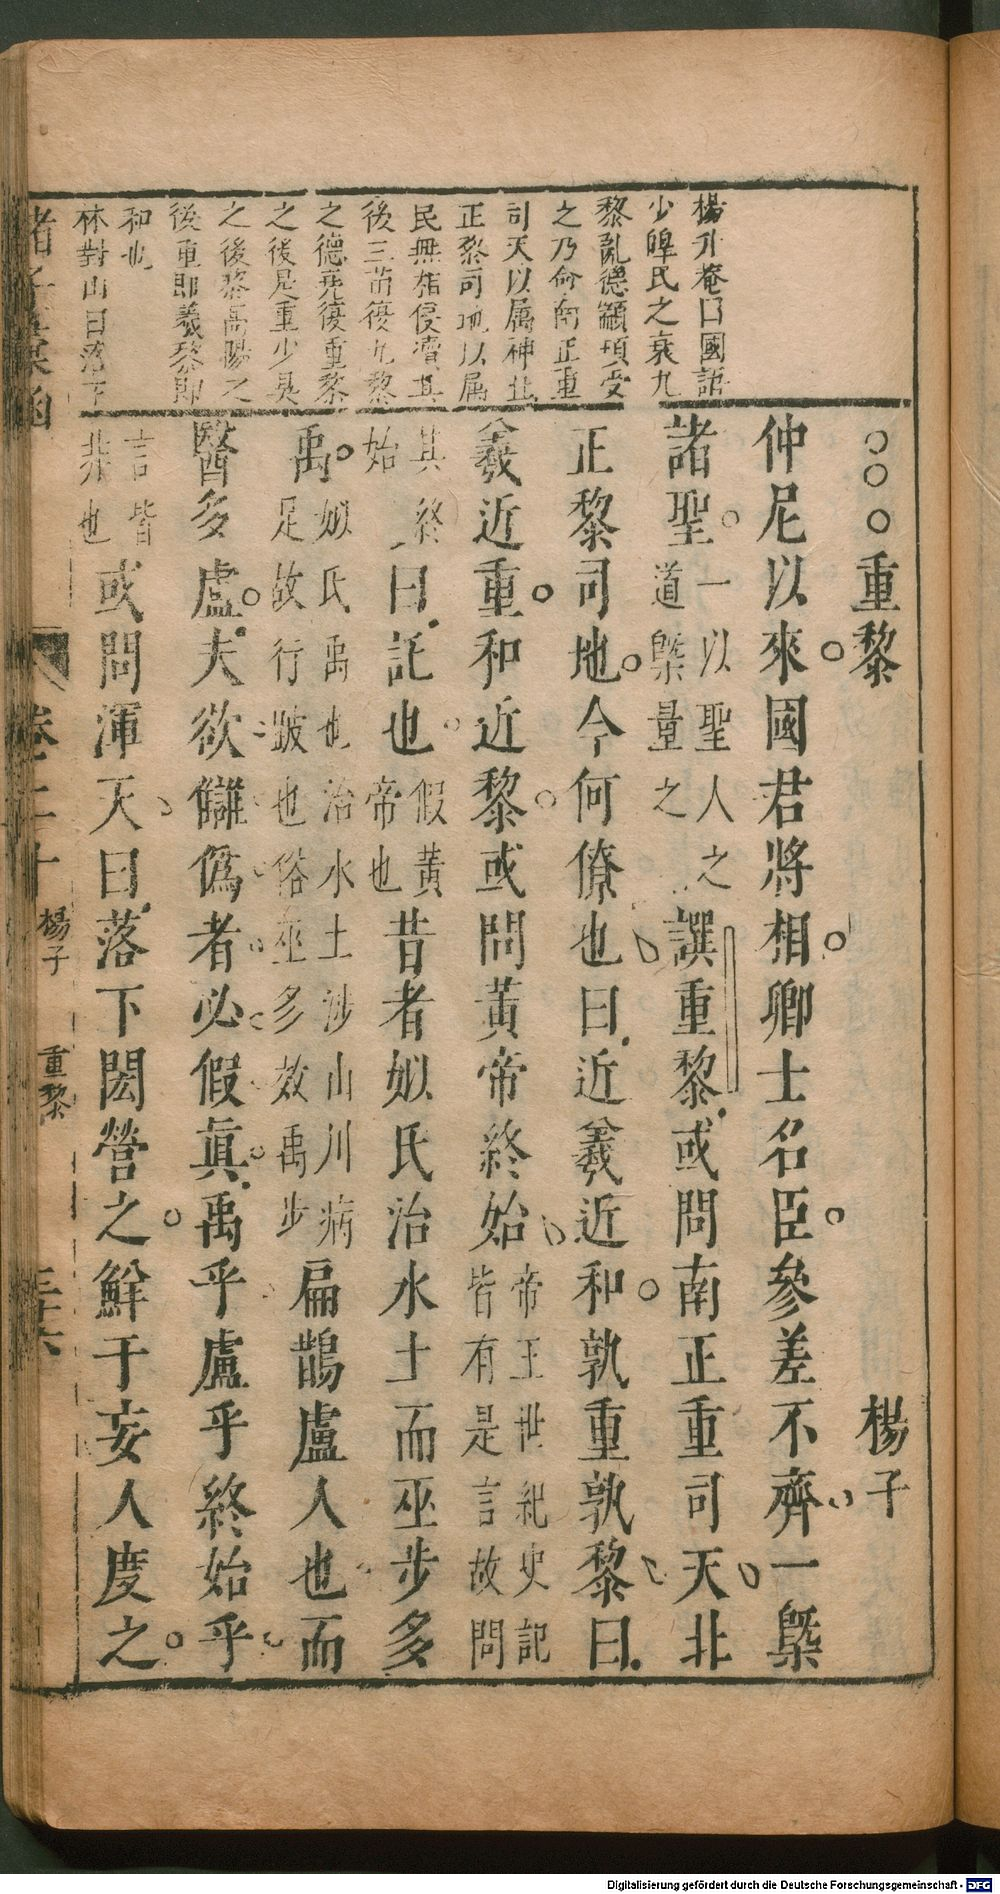 楊升菴曰國語
少皡氏之衰九
黎亂德顓頊受
之乃命南正重
司天以属神北
正黎司地以属
民無相侵瀆其
後三苗復九黎
之德堯復重黎
之後是重少昊
之後黎高陽之
後重即羲黎即
和也
林對山曰落下
○○○重黎 楊子
仲尼以來國君將相卿士名臣參差不齊一槩
諸聖一以聖人之道槩量之譔重黎或問南正重司天北
正黎司地今何僚也曰近羲近和孰重孰黎曰
羲近重和近黎或問黃帝終始帝王世紀史記皆有是言故問
其終始曰託也假黃帝也昔者姒氏治水土而巫步多
禹姒氏禹也治水土涉山川病足故行跛也俗巫多效禹步扁鵲盧人也而
醫多盧夫欲讎偽者必假眞禹乎盧乎終始乎
言皆非也或問渾天曰落下閎營之鮮于妄人度之
諸子彙函 卷二十 楊子 重黎 三十六
Digitalisierung gefördert durch die Deutsche Forschungsgemeinschaft - DFG